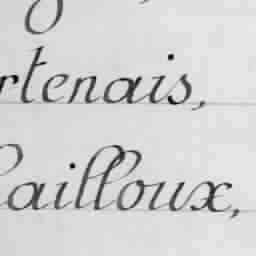 rtenais,
ailloux,